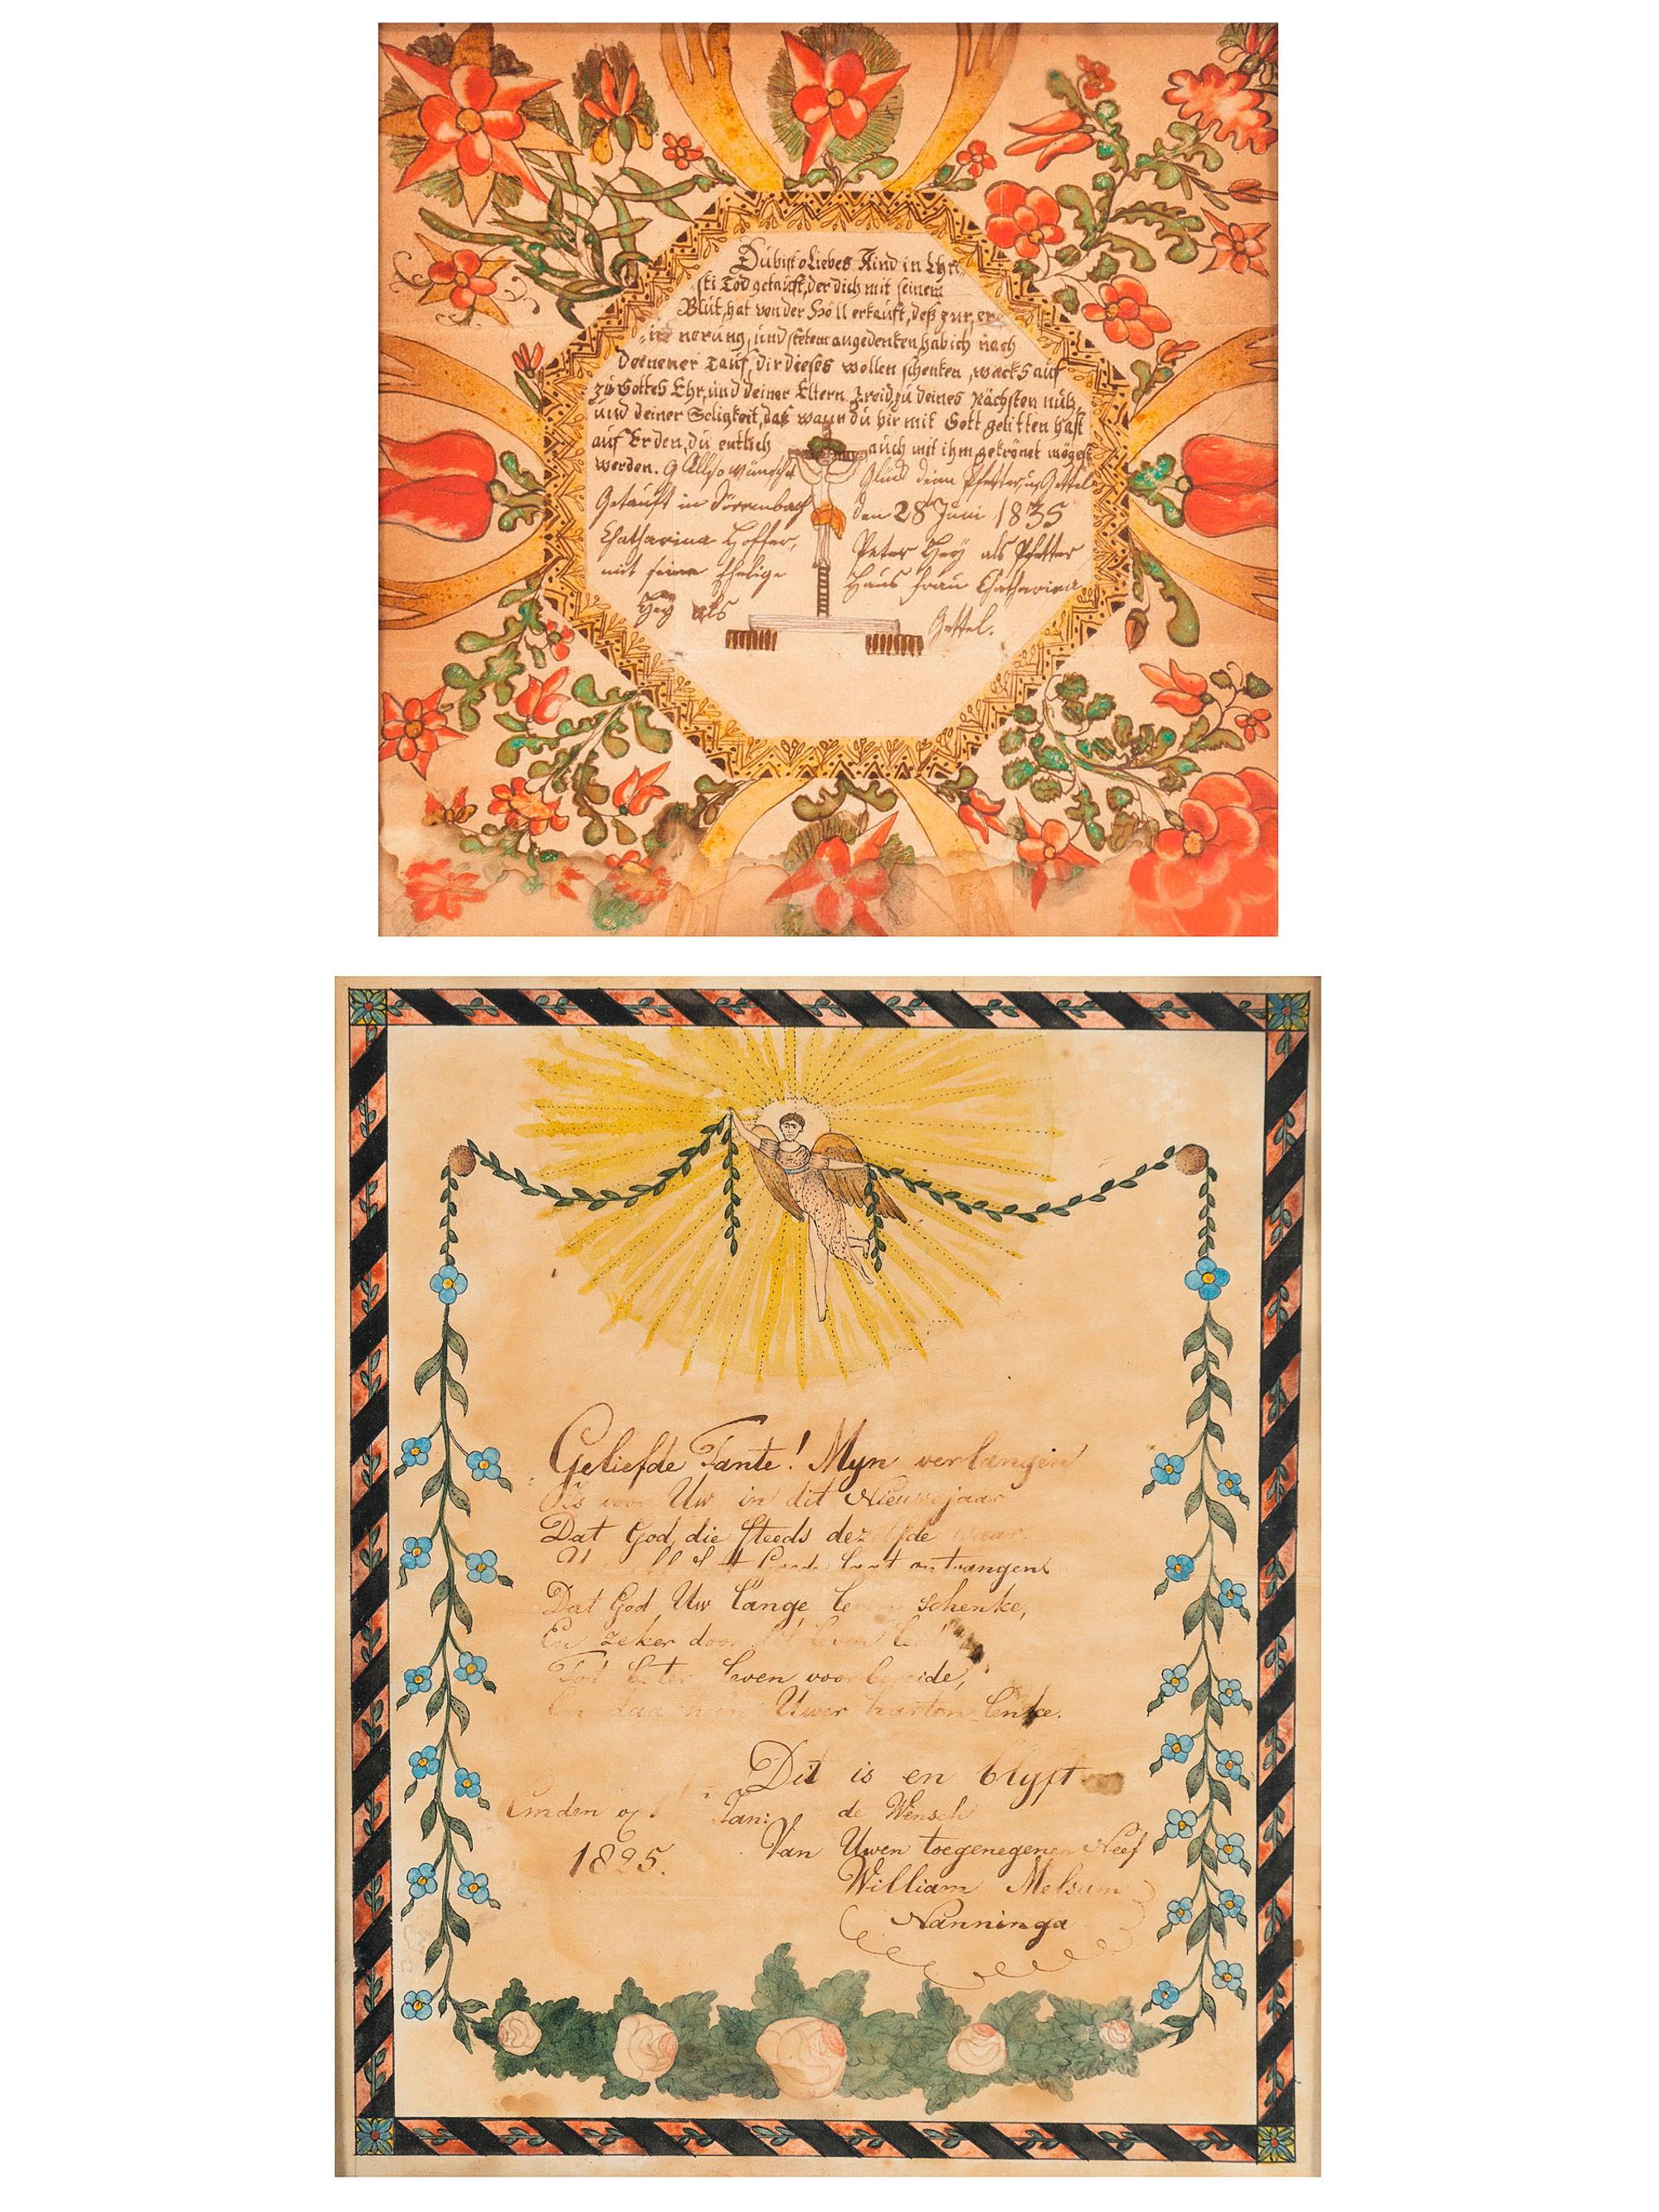 Du bist o Liebes Kind in Chri
sti Tod getauft, der dich mit seinem
Blut, hat von der Höll erkauft, deß zur, er
nerung, und stetem angedenken hab ich nach
deinener Tauf, dir dieses wollen schenken, wachs auf
zu Gottes Ehr, und deiner Eltern Freid, zu deines Nächsten nutz,
und deiner Seligkeit, das wann du hir mit Gott gelitten hast
auf Erden, du entlich auch mit ihm, gekrönet mögest
werden. Allso wünscht Glück dein Pfetter, u Gettel
Getauft in Dörrenbach den 28 Juni 1835
Chatharina Hoffer, Peter Hey als Pfetter
mit seine Ehelige Haus frau Chatharina
Hey als Gettel.
Geliefde Tante! Myn verlangen
Is voor Uw in dit Nieuwejaar
Dat God, die steeds dezelfde waar
ontvangen
Dat God Uw lange leven schenke,
En zeker door
Tot beter leven voorbereide,
Uwer harten lenke.
Dit is en blyft
Emden op Jan: de Wensch
1825. Van Uwen toegenegenen Neef
William Melsum
Nanninga